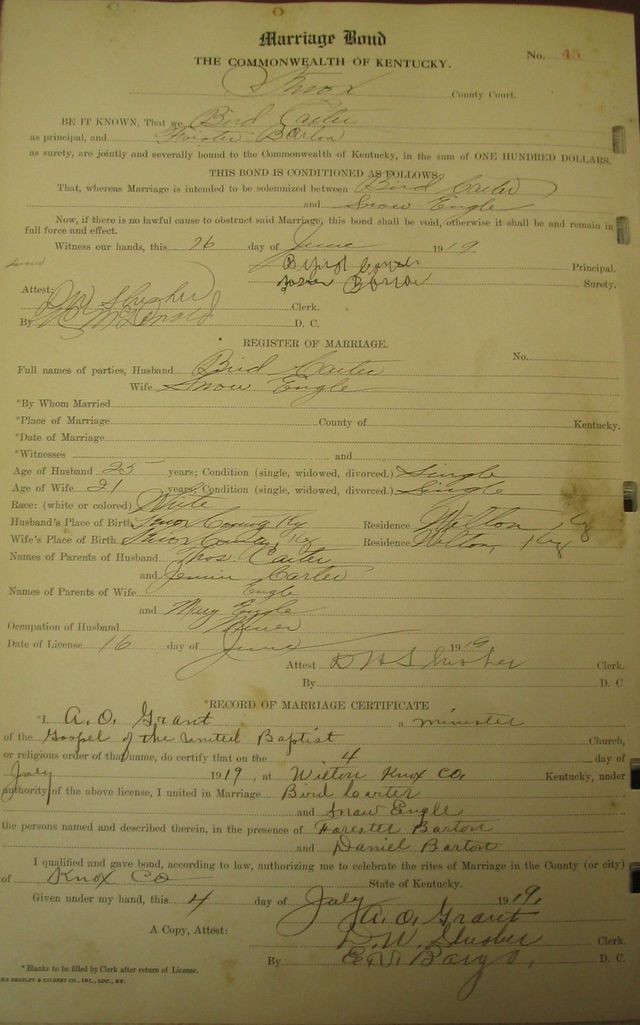 Marriage Bond
THE COMMONWEALTH OF KENTUCKY.
No. 45
Knox County Court.
BE IT KNOWN, That we Bird Carter
as principal, and Forister Barton
as surety, are jointly and severally bound to the Commonwealth of Kentucky, in the sum of ONE HUNDRED DOLLARS.
THIS BOND IS CONDITIONED AS FOLLOWS:
That, whereas Marriage is intended to be solemnized between Bird Carter
and Snow Engle
Now, if there is no lawful cause to obstruct said Marriage, this bond shall be void, otherwise it shall be and remain in
full force and effect.
Witness our hands, this 26 day of June 1919.
Carter Principal.
Barton Surety.
Attest:
D W Slusher Clerk.
By McDonald D. C.
REGISTER OF MARRIAGE.
No.
Full names of parties, Husband Bird Carter
Wife Snow Engle
*By Whom Married
*Place of Marriage County of Kentucky.
*Date of Marriage
*Witnesses and
Age of Husband 25 years; Condition (single, widowed, divorced.) Single
Age of Wife 21 years; Condition (single, widowed, divorced.) Single
Race: (white or colored) White
Husband's Place of Birth Knox County Ky Residence Wilton, Ky
Wife's Place of Birth Knox County Ky Residence Wilton, Ky
Names of Parents of Husband Thos. Carter
and Jennie Carter
Names of Parents of Wife Engle
and Mary Engle
Occupation of Husband Miner
Date of License 16 day of June 1919
Attest D W Slusher Clerk.
By D. C
RECORD OF MARRIAGE CERTIFICATE
*I, A. O. Grant a minister
of the Gospel of the United Baptist Church,
or religious order of that name, do certify that on the 4 day of
July 1919, at Wilton Knox Co. Kentucky, under
authority of the above license, I united in Marriage Bird Carter
and Snow Engle
the persons named and described therein, in the presence of Forester Barton
and Daniel Barton
I qualified and gave bond, according to law, authorizing me to celebrate the rites of Marriage in the County (or city)
of Knox Co State of Kentucky.
Given under my hand, this 4 day of July 1919.
A. O. Grant
A Copy, Attest: D. W. Slusher Clerk.
By D. C.
* Blanks to be filled by Clerk after return of License.
THE BRADLEY & GILBERT CO., INC., LOU., KY.